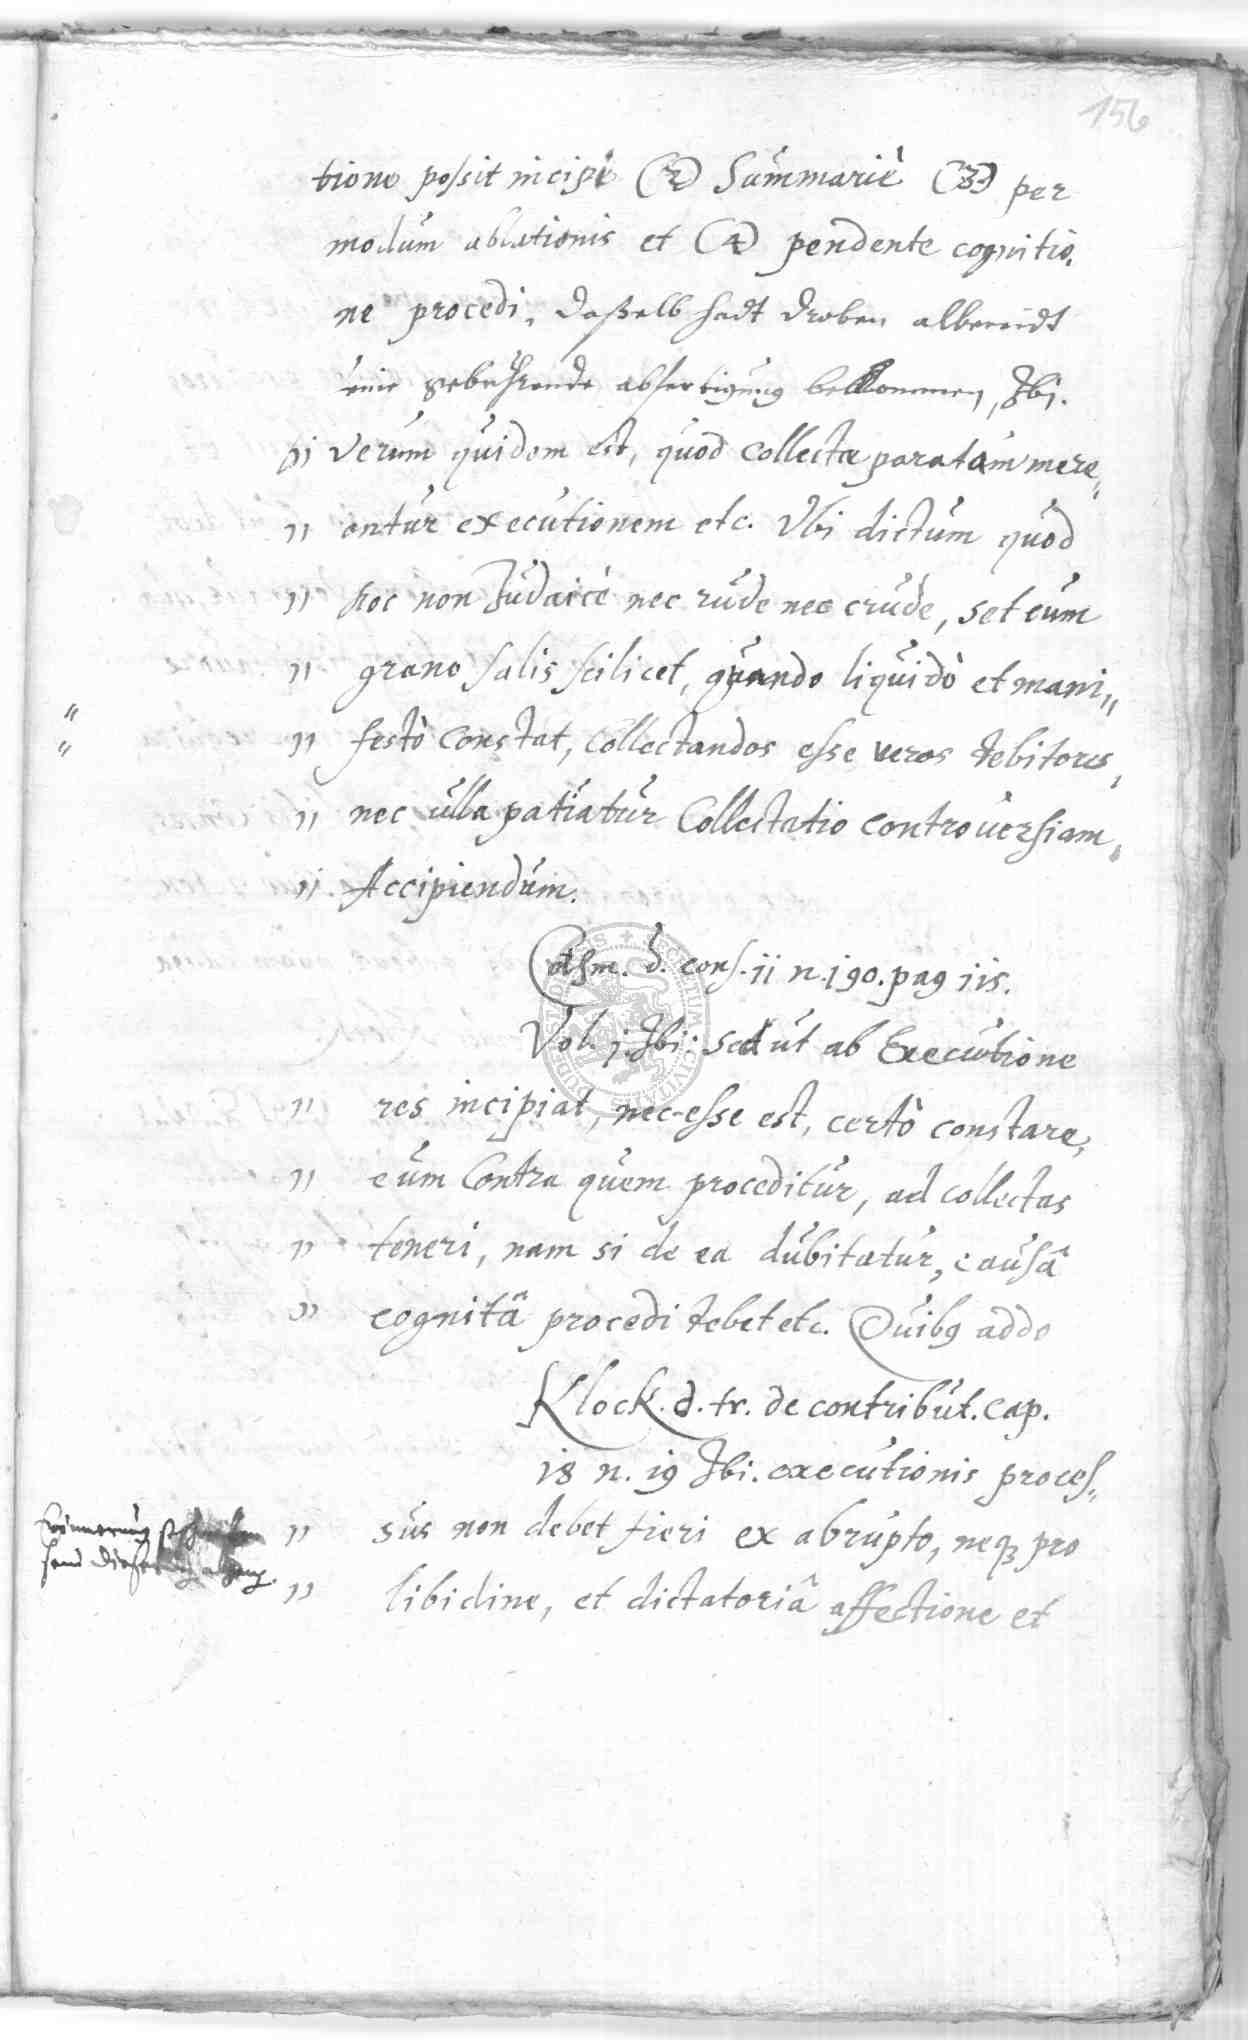 156
tione possit incipi (2) Summariè (3) per
modum ablationis et (4) pendente cognitio,
ne procedi, daßelb hadt droben albereidt
eine gebührende abfertigung bekommen, Ibi.
" verum quidem est, quod collectæ paratam mere„
" antur executionem etc. Vbi dictum quod
" hoc non Judaicè nec rude nec crude, set cum
" grano salis scilicet, quando liquidò et mani„
" festò constat, Collectandos esse veros debitores,
" nec ulla patiatur Collectatio controversiam,
" Accipiendum.
d. cons. ii n. i90. pag iis.
Vol. j. Ibi: Sed ut ab Executione
" res incipiat, nec-esse est, certò constare,
" eum Contra quem proceditur, ad collectas
" teneri, nam si de ea dubitatur, causâ
" cognitâ procedi debet etc. Quibq addo
Klock. d. tr. de contribut. cap.
i8 n. i9 Ibi. executionis proces„
" sus non debet fieri ex abrupto, neq₃ pro
" libidine, et dictatoriâ affectione et